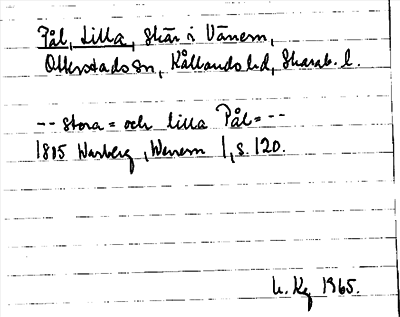 Pål, Lilla, Skär i Vänern,
Otterstads sn, Kållands hd, Skarab. l.
-- Stora = och lilla Pål = --
1805 Warberg, Wenern 1, s. 120.
h. Kg 1965.